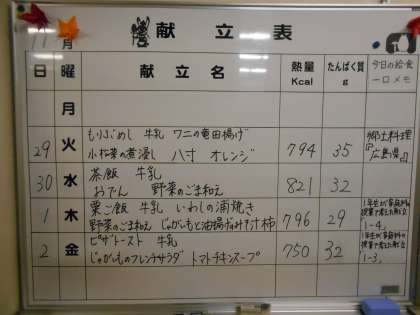 11月 献立表
日 曜 献立名 熱量 Kcal たんぱく質 g 今日の給食 一口メモ
月
29 火 もりぶめし 牛乳 ワニの竜田揚げ 794 35 郷土料理
小松菜の煮浸し 八寸 オレンジ 『広島県』
30 水 茶飯 牛乳 821 32
おでん 野菜のごま和え
1 木 栗ご飯 牛乳 いわしの蒲焼き 796 29
野菜のごま和え じゃがいもと油揚げのみそ汁 柿 1-4
2 金 ピザトースト 牛乳 750 32
じゃがいものフレンチサラダ トマトチキンスープ 1-3